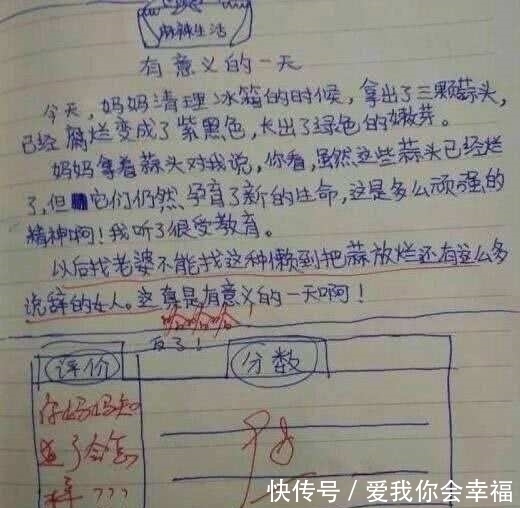 麻辣生活
有意义的一天
今天，妈妈清理冰箱的时候，拿出了三颗蒜头，
已经腐烂变成了紫黑色，长出了绿色的嫩芽。
妈妈拿着蒜头对我说，你看，虽然这些蒜头已经烂
了，但它们仍然孕育了新的生命，这是多么顽强的
精神啊！我听了很受教育。
以后找老婆不能找这种懒到把蒜放烂还有这么多
说辞的女人。这真是有意义的一天啊！
哈哈哈
反了！
评价
分数
你妈妈知
道了会怎
样???
快传号／爱我你会幸福